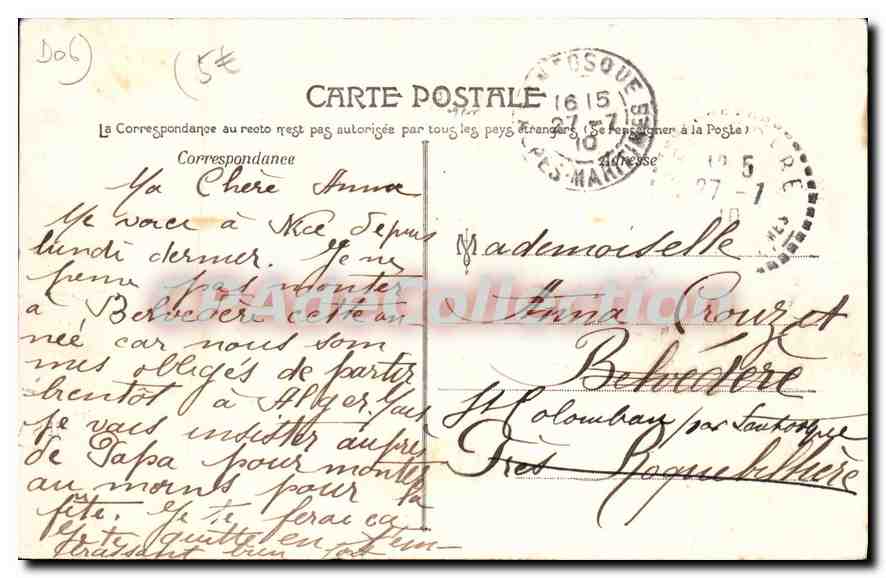 D06
5€
CARTE POSTALE
La Correspondance au recto n'est pas autorisée par tous les pays étrangers (Se renseigner à la Poste)
Correspondance
Ma Chère Anna
Me voici à Nice depuis
lundi dernier. Je ne
pense pas monter
à Belvédère cette an
née car nous som
mes obligés de partir
bientôt à Alger. Mais
je vais insister auprès
de Papa pour monter
au moins pour la
fête. Je te ferai ça
Je te quitte en t'em-
brassant bien fort
Adresse
Mademoiselle
Anna Crouzet
Belvédère
St Colomban par Lantosque
Près Roquebillière
LANTOSQUE
16 15
27 -7
10
ALPES-MARITIMES
27 -7
CPAdeCollection